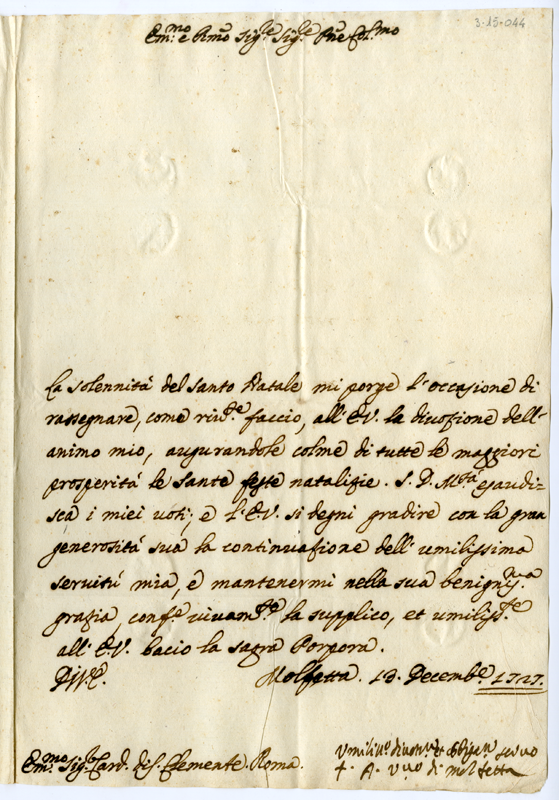 3-15-044
Em.mo e R.mo Sig.re Sig.re P.ne Col.mo
La solennità del Santo Natale mi porge l'occasione di
rassegnare, come riv.te faccio, all' E.V. la divozione dell'
animo mio, augurandole colme di tutte le maggiori
prosperità le Sante feste natalizie. S. D. M.tà esaudi-
sca i miei voti; e l'E.V. si degni gradire con la gran
generosità sua la continuazione dell' umilissima
servitù mia, e mantenermi nella sua benigniss.ma
grazia, conf.e vivam.te la supplico, et umiliss.te
all' E.V. bacio la sagra Porpora.
Di V.E.
Molfetta. 13. Decemb.e 1727.
Em.mo Sig.r Card. di S. Clemente. Roma.
Umilis.o divotis.o et obligatis. servo
+ A. V.vo di Molfetta